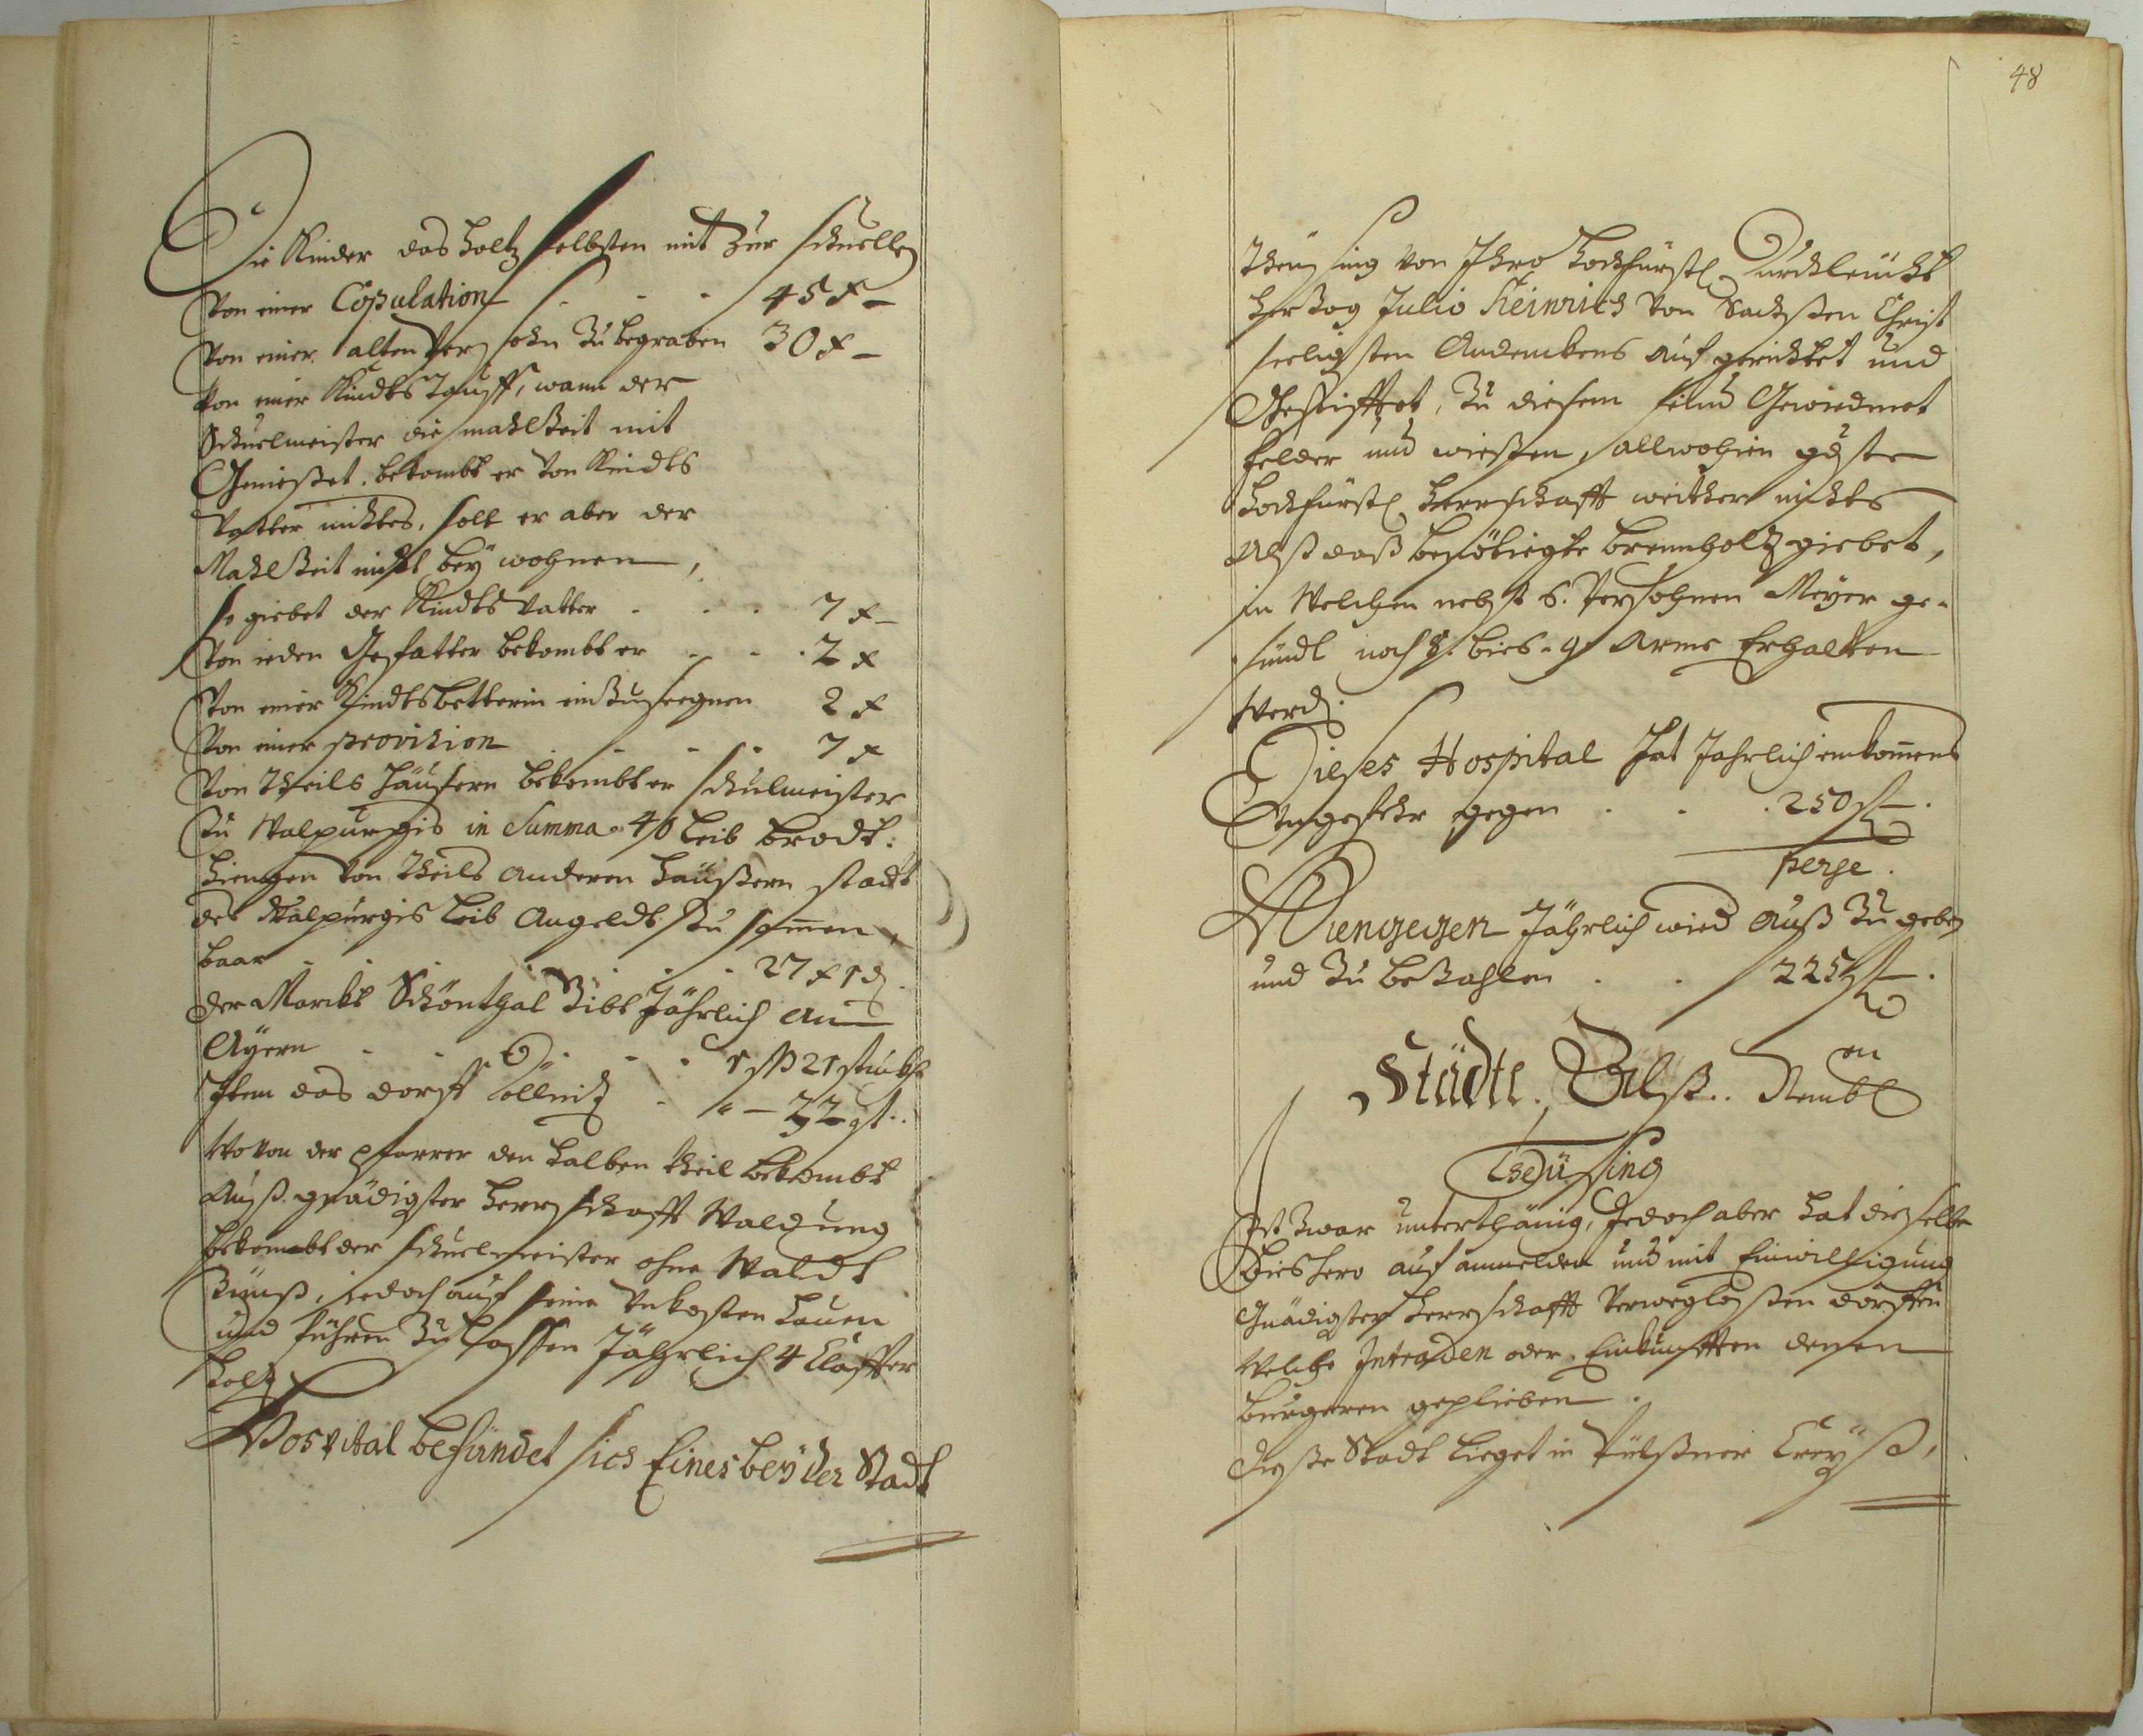 Die Kinder das holtz selbsten mit zur schuellen
Von einer Copulation - - - 45 x -
Von einer alten Persohn zu begraben 30 x -
Von einer Kindts Tauff, wann der
Schuelmeister die mahlzeit mit
Genießet, bekombt er von Kindts
Vatter nichtes, solt er aber der
Mahlzeit nicht bey wohnen,
so giebet der Kindts Vatter - - - 7 x -
Von ieden Gefatter bekombt er - - - 2 x
Von einer Kindtsbetterin einzuseegnen 2 x
Von einer provision - - - 7 x
Von Theils häusern bekombt er schulmeister
Zu Walpurgis in Summa 40 leib brodt:
hiengegen von theils anderen häußern statt
des Walpurgis leib Angeldt zu samen,
baar - - - - 27 x 1 d.
Der Marckt Schönthal Zibt Jährlich an
Ayern - - - - 1 ß 21 stuckh
Item das dorff Gellnitz - " - 22 gt.
Wovon der pfarrer den halben theil bekombt
Auß gnädigster herrschafft Waldung
bekombt der schuelmeister ohne Waldt
Zünß, iedoch auf seine Unkosten hauen
und führen zu lassen Jährlich 4 Claffter
holtz
Hospital befündet sich Eines bey der Stadt
48
Theüsing von Ihro hochfürstl. Durchleücht
herzog Julio Heinrich von Sachßen Christ
seeligsten Andenckens auf gerichtet und
Gestifftet, Zu diesem seind Gewiedmet
felder und wießen, allwohin gdste
hochfürstl. herrschafft weither nichts
Alß daß benötiegte brennholtz giebet,
in Welchen nebst 6. Persohnen Meyer ge-
sündl noch 8. bies 9. Arme Erhalten
Werd.
Dieses Hospital Hat Jahrlich einkomens
Ungefehr gegen - - - 250 f -.
perge.
Hiengegen Jährlich wird auß zu geben
und zu bezahlen - - 225 f -.
Städte. Pilß.. Nembl en
Theüsing
Ist zwar unterthänig, Jedoch aber hat dieselbe
bieshero auf anmelden und mit Einwilligung
Gnädigster herrschafft Verweglaßen dörffen
Welche Intraden oder Einkünfften denen
burgeren geplieben.
Dieße Stadt lieget in Pülßner Creyß,